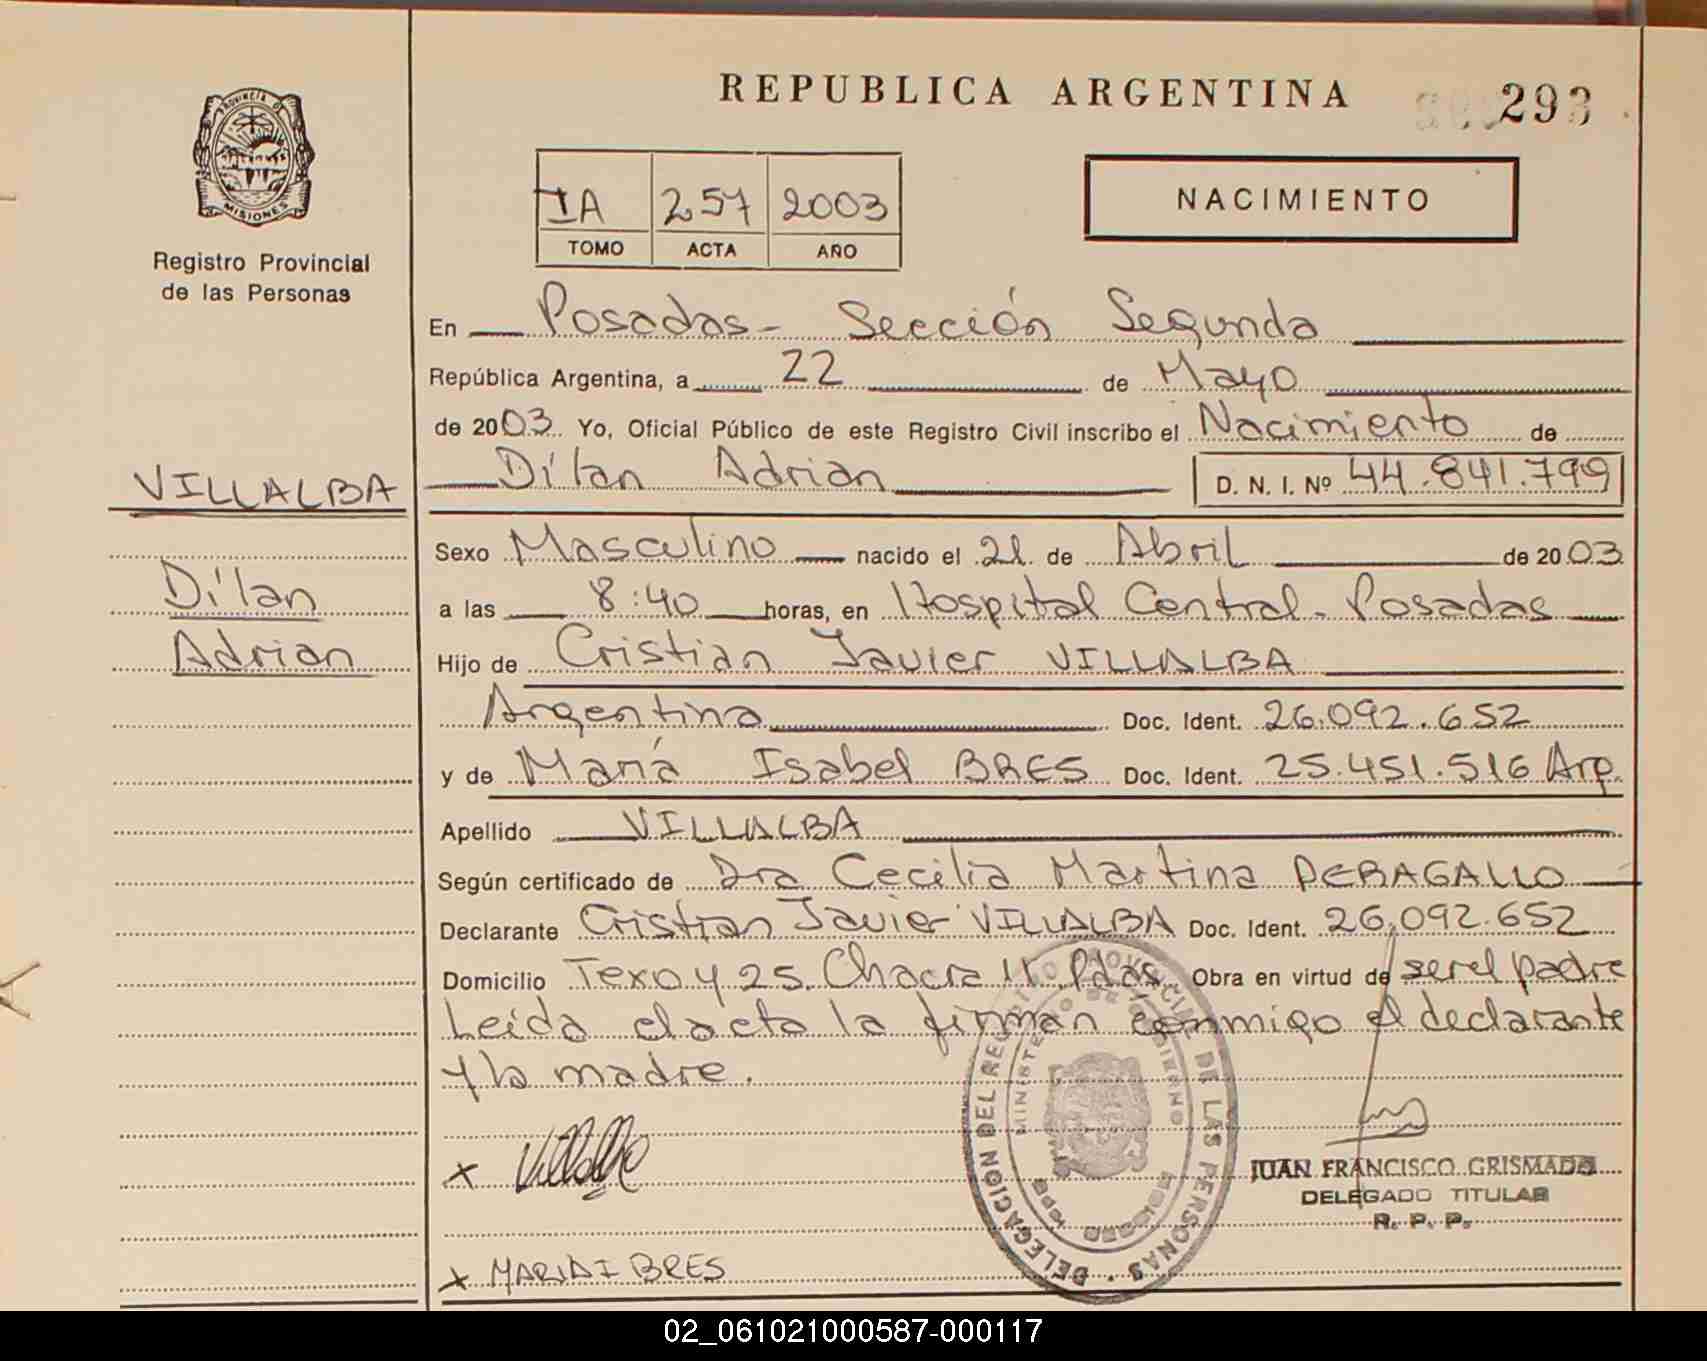 REPUBLICA ARGENTINA
293
PROVINCIA DE
MISIONES
Registro Provincial
de las Personas
IA 257 2003
TOMO ACTA AÑO
NACIMIENTO
En Posadas - Sección Segunda
República Argentina, a 22 de Mayo
de 2003. Yo, Oficial Público de este Registro Civil inscribo el Nacimiento de
VILLALBA
Dílan Adrian D. N. I. Nº 44.841.799
Sexo Masculino nacido el 21 de Abril de 2003
Dílan
a las 8:40 horas, en Hospital Central - Posadas
Adrian
Hijo de Cristian Javier VILLALBA
Argentina Doc. Ident. 26.092.652
y de María Isabel BRES Doc. Ident. 25.451.516 Arg.
Apellido VILLALBA
Según certificado de Dra Cecilia Martina PERAGALLO
Declarante Cristian Javier VILLALBA Doc. Ident. 26.092.652
Domicilio Texo y 25. Chacra 11. Pdas. Obra en virtud de ser el padre
Leída el acta la firman conmigo el declarante
y la madre.
x Villalba
DELEGACION DEL REGISTRO PROVINCIAL DE LAS PERSONAS
MINISTERIO DE GOBIERNO
JUAN FRANCISCO GRISMADO
DELEGADO TITULAR
R. P. P.
x MARIA I BRES
02_061021000587-000117